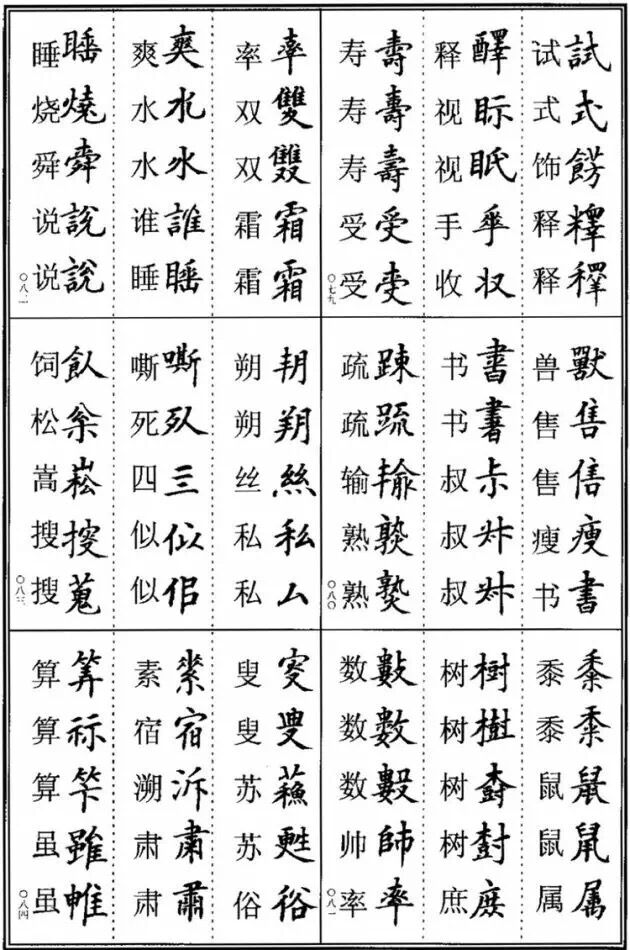 试試
式式
饰餝
释𥼶
释
释醳
视眎
视眡
手
收収
寿壽
寿壽
寿壽
受受
受
〇七九
兽獸
售售
售
瘦瘦
书書
书書
书書
叔
叔
叔
疏踈
疏䟽
输
熟
熟
〇八〇
黍黍
黍
鼠鼠
鼠
属属
树樹
树樹
树
树尌
庶庻
数數
数數
数
帅帥
率率
〇八一
率率
双雙
双雙
霜霜
霜霜
爽爽
水水
水水
谁誰
睡睡
睡睡
烧燒
舜舜
说說
说說
朔
朔朔
丝絲
私私
私厶
嘶嘶
死
四
似似
似佀
饲飤
松枀
嵩崧
搜
搜蒐
〇八三
叟叜
叟
苏蘓
苏甦
俗俗
素
宿宿
溯泝
肃肅
肃
算筭
算祘
算
虽雖
虽
〇八四